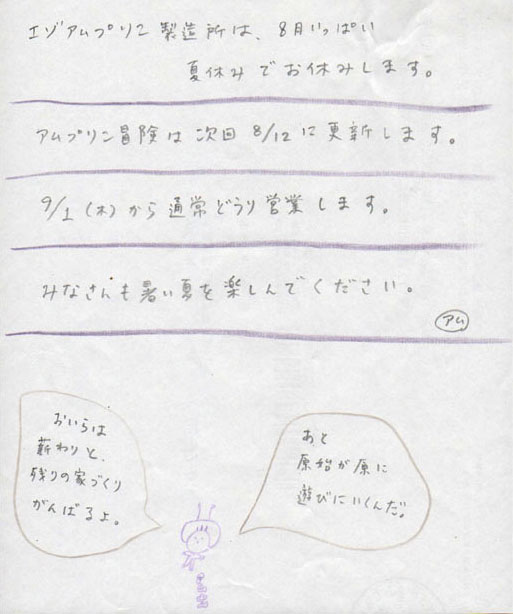 エゾアムプリン製造所は、8月いっぱい
夏休みでお休みします。
アムプリン冒険は次回 8/12に更新します。
9/1(木)から通常どうり営業します。
みなさんも暑い夏を楽しんでください。
アム
おいらは
薪わりと、
残りの家づくり
がんばるよ。
あと
原始が原に
遊びにいくんだ。